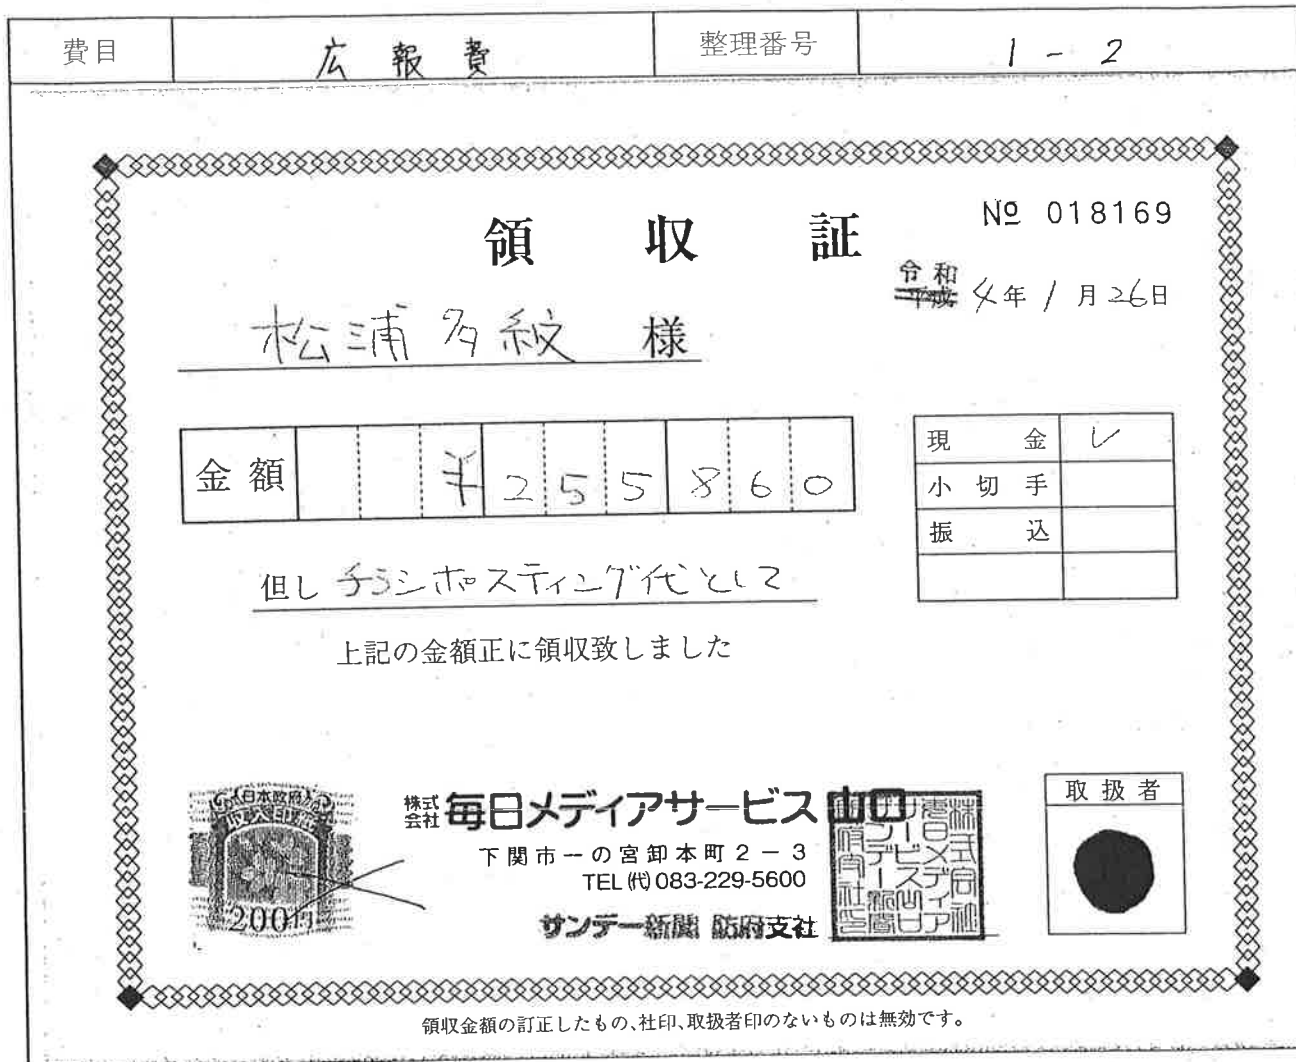 費目 広報費 整理番号 1-2
領収証
№ 018169
令和 平成 4年1月26日
松浦多紋 様
金額 ¥255860
現金 レ
小切手
振込
但し チラシポスティング代として
上記の金額正に領収致しました
日本政府
収入印紙
200円
株式会社 毎日メディアサービス山口
下関市一の宮卸本町2-3
TEL(代)083-229-5600
サンデー新聞 防府支社
株式会社毎日メディアサービス山口サンデー新聞防府支社印
取扱者
領収金額の訂正したもの、社印、取扱者印のないものは無効です。